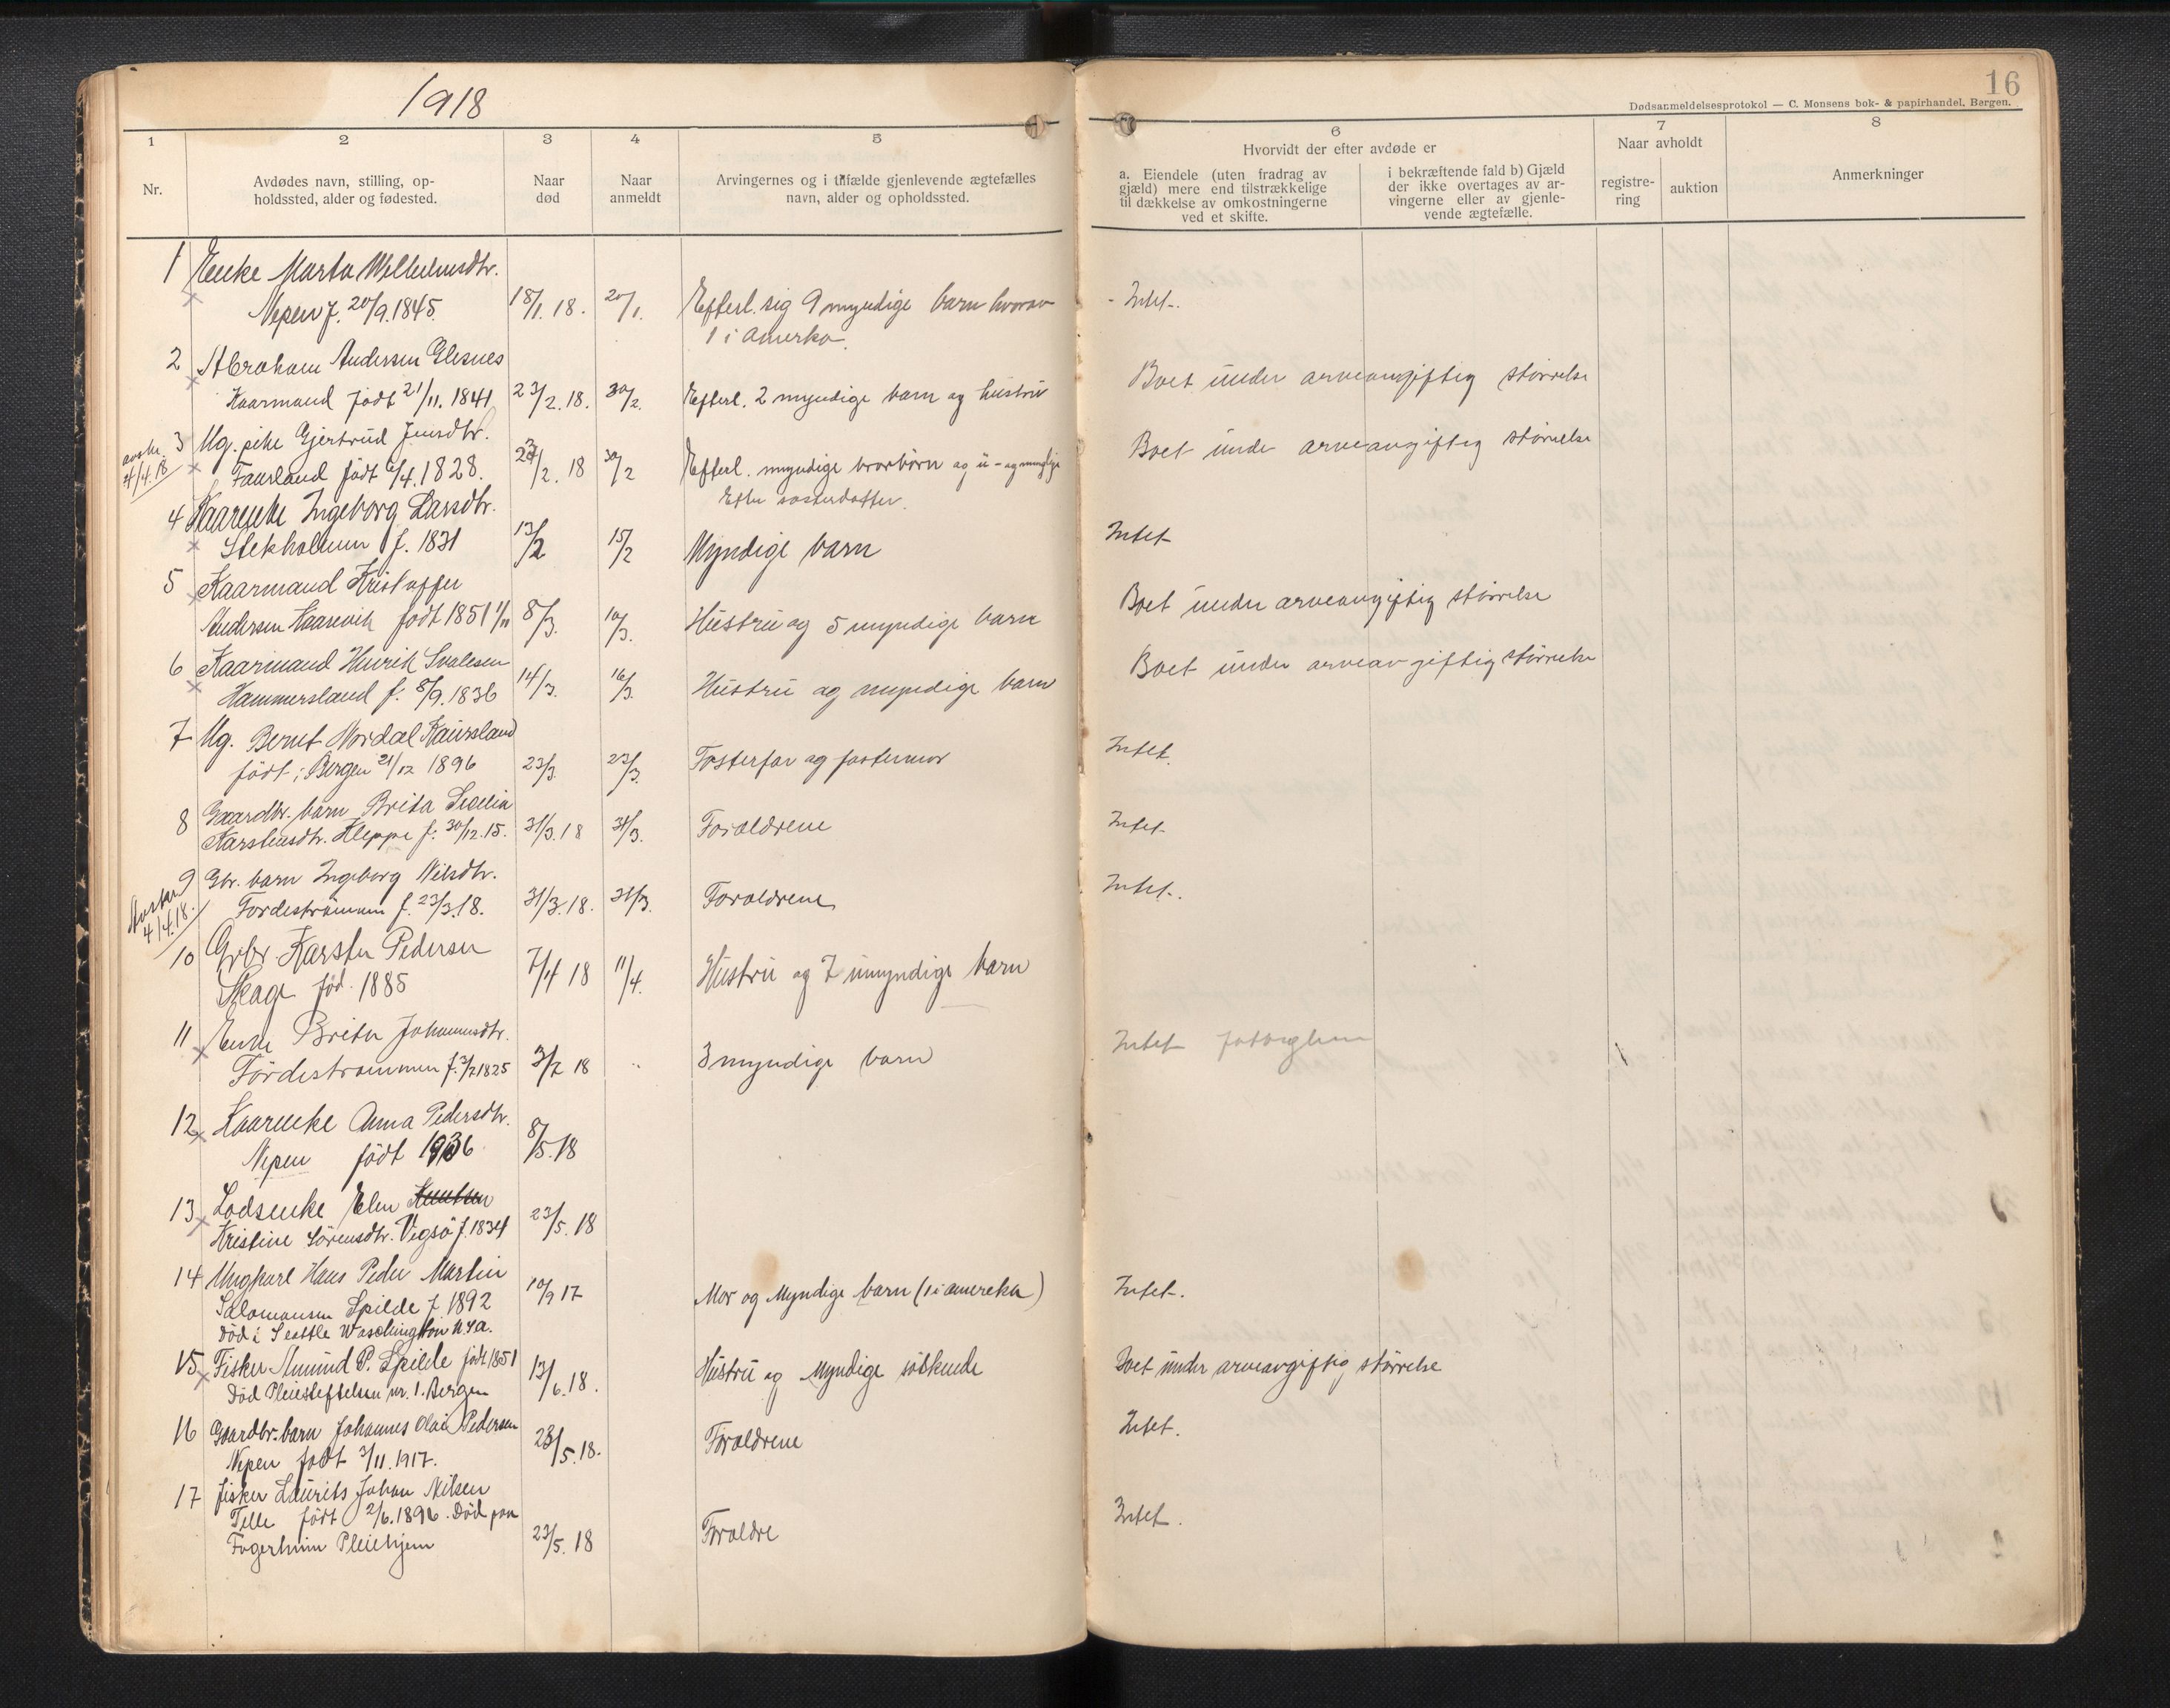 1918
16
Dødsanmeldelsesprotokol — C. Monsens bok- & papirhandel. Bergen.
1
2
3
4
5
6
7
8
Nr.
Avdødes navn, stilling, op-
holdssted, alder og fødested.
Naar
død
Naar
anmeldt
Arvingernes og i tilfælde gjenlevende ægtefælles
navn, alder og opholdssted.
Hvorvidt der efter avdøde er
a. Eiendele (uten fradrag av
gjæld) mere end tilstrækkelige
til dækkelse av omkostningerne
ved et skifte.
i bekræftende fald b) Gjæld
der ikke overtages av ar-
vingerne eller av gjenle-
vende ægtefælle.
Naar avholdt
registre-
ring
auktion
Anmerkninger
1 Enke Marta Willumsdtr.
Nepen f. 20/9.1845. 18/1.18. 20/1. Efterl. sig 9 myndige barn hvorav - Intet.
1 i Amerka.
2 Abraham Andersen Glesnes
Kaarmand født 21/11.1841 23/2.18. 30/2. Efterl. 2 myndige barn og hustru Boet under arveavgiftig størrelse
3 Ug. pike Gjertrud Jensdtr.
4/4.18 Faursland født 6/4.1828. 2/2.18 30/2 Efterl. myndige brorbørn og u- og myndige Boet unde arveavgiftig størrelse
Efter søsterdatter.
4 Kaarenke Ingeborg Larsdtr.
Stekholmen f. 1831 13/2 15/2 Myndige barn Intet
5 Kaarmand Kristoffer
Andersen Kaarevik født 1851 1/11 8/3. 10/3. Hustru og 5 myndige barn Boet under arveavgiftig størrelse
6 Kaarmand Henrik Svalesen
Hammersland f. 8/9.1836 14/3. 16/3. Hustru og myndige barn Boet under arveavgiftig størrelse
7 Ug. Bernt Nordal Kaursland
født i Bergen 21/12 1896 23/3 23/3. Fosterfar og fostermor Intet.
8 Gaardbr. barn Brita Secelia
Karstensdtr. Kleppe f. 30/12.15. 31/3.18 31/3. Foraldrene Intet
9 Gbr. barn Ingeborg Nilsdtr.
4/4.18. Førdestrømmen f. 23/3.18. 31/3.18. 31/3. Foraldrene Intet.
10 Grbr Karsten Pedersen
Skage fød. 1885 7/4 18 11/4. Hustru og 7 umyndige barn
11 Enke Brita Johannesdtr.
Førdestrømmen f. 3/7 1825 3/2 18 3 myndige barn Intet
12 Kaarenke Anna Pedersdtr.
Nepen født 1836 8/5.18
13 Lodsenke Elen Knutsen
Kristine Sørensdtr. Vigsø f. 1834 23/5.18
14 Ungkarl Hans Peder Martin
Salomonsen Spilde f 1892 10/9 17 Mor og Myndige barn (1 i amereka) Intet.
Død i Seattle Waschington U.S.A.
15 Fisker Amund P. Spilde født 1851
Død Pleiestiftelsen nr. 1. Bergen 13/6.18. Hustru og Myndige søskende Boet under arveavgiftig størrelse
16 Gaardbr. barn Johannes Olai Pedersen
Nepen født 3/11.1917. 28/5.18. Foraldrene Intet.
17 fisker Laurits Johan Nilsen
Telle født 2/6.1896. Død paa
Fagerheim Pleiehjem 23/5.18 Foraldre Intet.